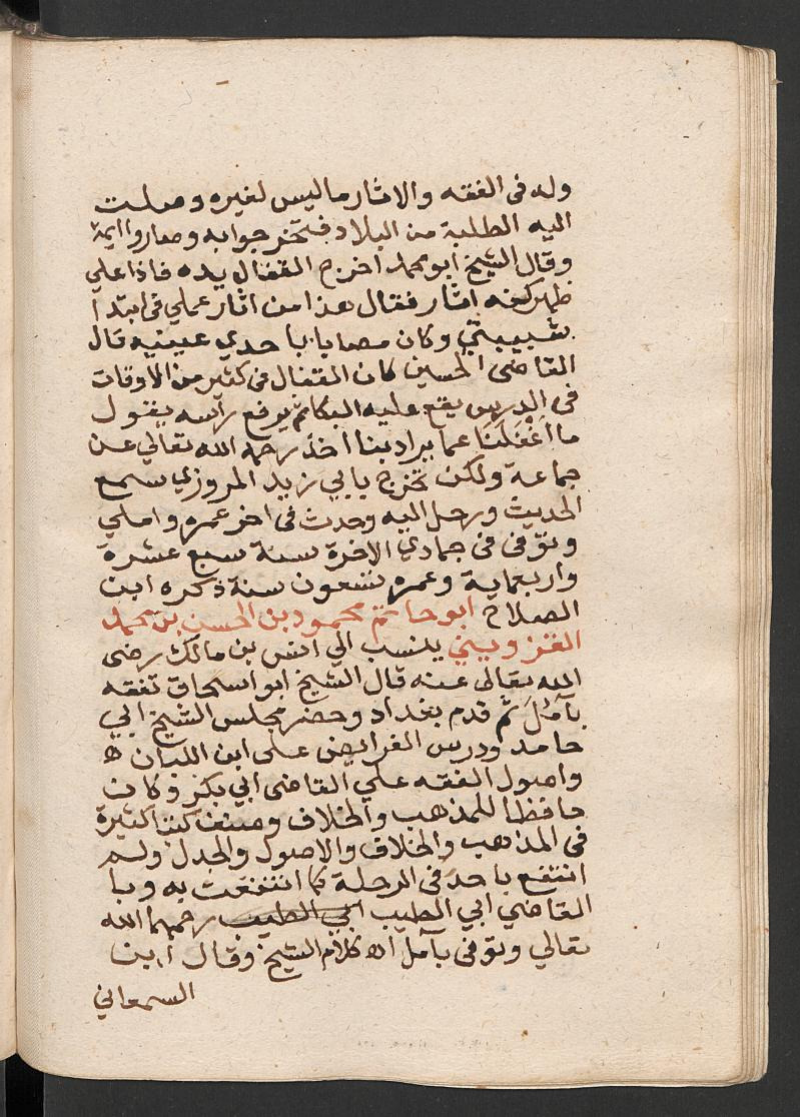 وله فى الفقه والاثار ما ليس لغيره وصلت
اليه الطلبة من البلاد فتخرجوا به وصاروا ايمة
وقال الشيخ ابو محمد اخرج القفال يده فاذا علي
ظهر كفه اثار فقال هذا من اثار عملي فى ابتدا
شبيبتي وكان مصابا باحدي عينيه قال
القاضى الحسين كان القفال فى كثير من الاوقات
فى الدرس يقع عليه البكا ثم يرفع راسه يقول
ما اغْفَلَنَا عما يراد بنا اخذ رحمه الله تعالي عن
جماعة ولكن تخرج بابي زيد المروزي سمع
الحديث ورحل اليه وحدث فى اخر عمره واملي
وتوفى فى جمادي الاخرة سنة سبع عشرة
واربعماية وعمره تسعون سنة ذكره ابن
الصلاح ابو حاتم محمود بن الحسن بن محمد
القزويني ينسب الي انس بن مالك رضى
الله تعالى عنه قال الشيخ ابو اسحاق تفقه
بآمُلَ ثم قدم بغداد وحضر مجلس الشيخ ابي
حامد ودرس الفرايض على ابن اللبان
واصول الفقه علي القاضى ابي بكر وكان
حافظا للمذهب والخلاف وصنف كتبا كثيرة
فى المذهب والخلاف والاصول والجدل ولم
انتفع باحد فى الرحلة كما انتفعت به وبا
القاضي ابي الطيب ابي الطيب رحمهما الله
تعالي وتوفى بآمل اه كلام الشيخ وقال ابن
السمعاني